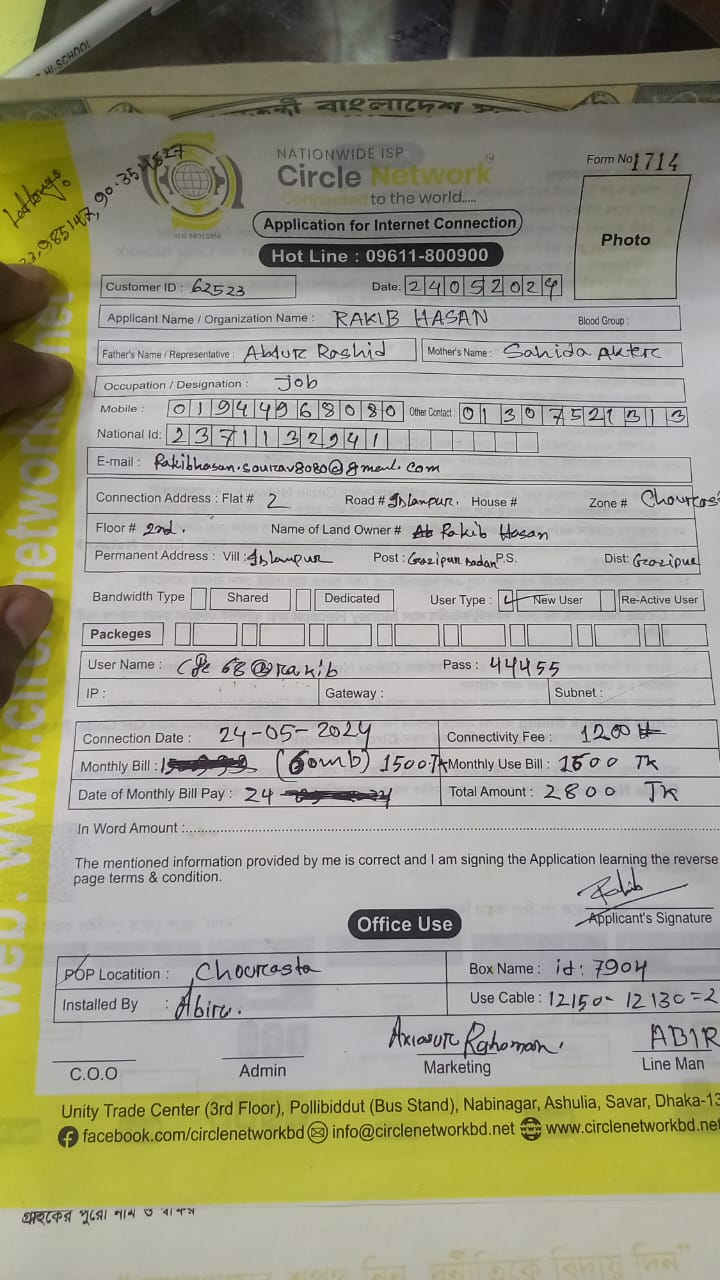 HI-SCHOOL
বাংলাদেশ
Lat Long:
23.985147, 90.354827
NATIONWIDE ISP
Circle Network
Connected to the world.....
Form No 1714
Application for Internet Connection
Photo
Hot Line : 09611-800900
Customer ID : 62523 Date: 24052024
Applicant Name / Organization Name : RAKIB HASAN Blood Group :
Father's Name / Representative : Abdur Rashid Mother's Name : Sahida Akter
Occupation / Designation : Job
Mobile : 01944968080 Other Contact : 01307521313
National Id: 2371132941
E-mail : Rakibhasan.sourav8080@gmail.com
Connection Address : Flat # 2 Road # Islampur. House # Zone #
Floor # 2nd. Name of Land Owner # Rakib Hasan
Permanent Address : Vill : Islampur Post : Gazipur sadar P.S. Dist: Gazipur
Bandwidth Type Shared Dedicated User Type : New User Re-Active User
Packeges
User Name : 68@rakib Pass : 44455
IP : Gateway : Subnet :
Connection Date : 24-05-2024 Connectivity Fee : 1200
Monthly Bill : 1500.Tk Monthly Use Bill : 1500 Tk
Date of Monthly Bill Pay : 24 Total Amount : 2800 Tk
In Word Amount :
The mentioned information provided by me is correct and I am signing the Application learning the reverse
page terms & condition.
Rakib
Applicant's Signature
Office Use
POP Locatition : Chourasta Box Name : id: 7904
Installed By : Abir. Use Cable : 12150- 12130 = 2
Rahoman. ABIR
C.O.O Admin Marketing Line Man
Unity Trade Center (3rd Floor), Pollibiddut (Bus Stand), Nabinagar, Ashulia, Savar, Dhaka-13
facebook.com/circlenetworkbd info@circlenetworkbd.net www.circlenetworkbd.net
web: www.circlenetworkbd.net
গ্রাহকের পুরো নাম ও